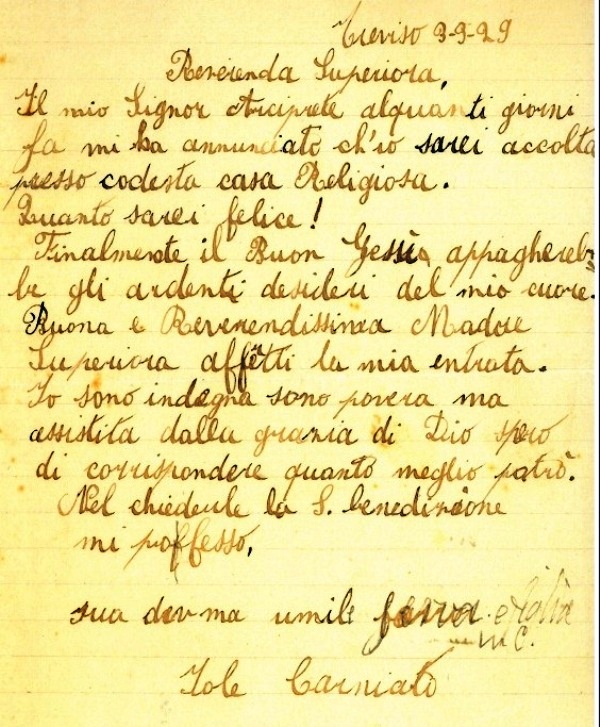 Treviso 9-9-29
Reverenda Superiora,
Il mio Signor Arciprete alquanti giorni
fa mi ha annunciato ch'io sarei accolta
presso codesta casa Religiosa.
Quanto sarei felice!
Finalmente il Buon Gesù appaghereb-
be gli ardenti desideri del mio cuore.
Buona e Reverendissima Madre
Superiora affretti la mia entrata.
Io sono indegna sono povera ma
assistita dalla grazia di Dio spero
di corrispondere quanto meglio potrò.
Nel chiederle la S. benedizione
mi professo,
sua dev ma umile serva e figlia
M C.
Iole Carniato